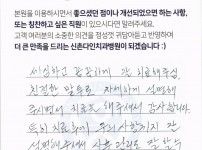 본원을 이용하시면서 좋으셨던 점이나 개선되었으면 하는 사항,
또는 칭찬하고 싶은 직원이 있으시다면 말씀해주세요.
고객 여러분의 소중한 의견을 정성껏 귀담아듣고 반영하여
더 큰 만족을 드리는 신촌다인치과병원이 되겠습니다 :)
세심하고 꼼꼼하게 잘 치료해주심
친절한 말투로 자세하게 설명해
주시면서 치료를 해주셔서 감사합니다.
특히 치료
설명해주셔서